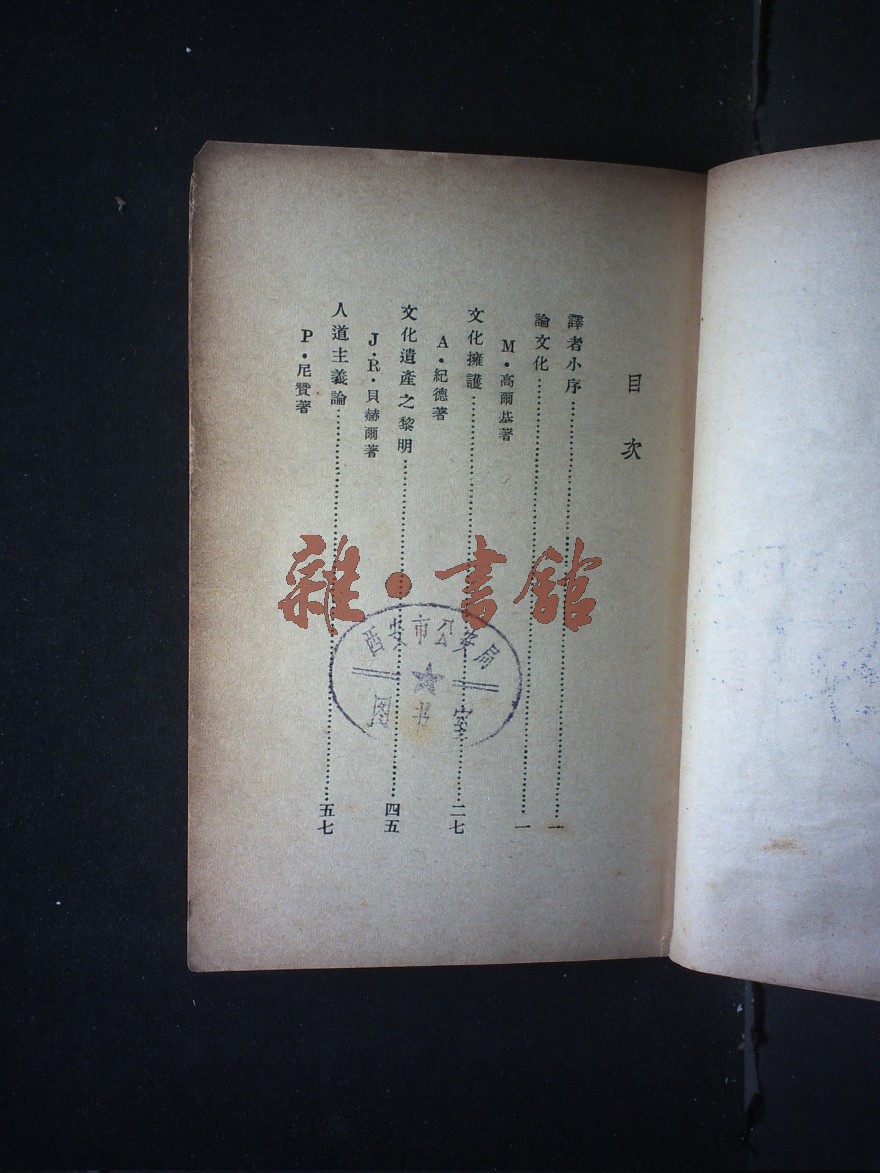 目次
譯者小序……一
論文化……一
M·高爾基著
文化擁護……二七
A·紀德著
文化遺產之黎明……四五
J·R·貝赫爾著
人道主義論……五七
P·尼贊著
雜·書館
西安市公安局
图书室